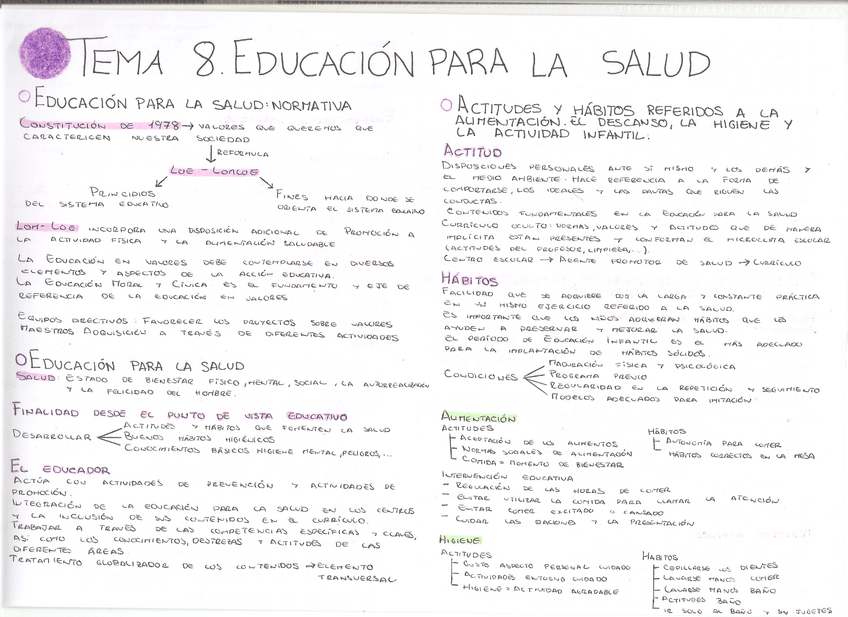 TEMA 8. EDUCACIÓN PARA LA SALUD
EDUCACIÓN PARA LA SALUD: NORMATIVA
CONSTITUCIÓN DE 1978 → VALORES QUE QUEREMOS QUE
CARACTERICEN NUESTRA SOCIEDAD
REFORMULA
LOE - LOMLOE
PRINCIPIOS
DEL SISTEMA EDUCATIVO
FINES HACIA DONDE SE
ORIENTA EL SISTEMA EDUCATIVO
LOM-LOE INCORPORA UNA DISPOSICIÓN ADICIONAL DE PROMOCIÓN A
LA ACTIVIDAD FÍSICA Y LA ALIMENTACIÓN SALUDABLE
LA EDUCACIÓN EN VALORES DEBE CONTEMPLARSE EN DIVERSOS
ELEMENTOS Y ASPECTOS DE LA ACCIÓN EDUCATIVA.
LA EDUCACIÓN MORAL Y CÍVICA: ES EL FUNDAMENTO Y EJE DE
REFERENCIA DE LA EDUCACIÓN EN VALORES
EQUIPOS DIRECTIVOS: FAVORECER LOS PROYECTOS SOBRE VALORES
MAESTROS ADQUISICIÓN A TRAVÉS DE DIFERENTES ACTIVIDADES
EDUCACIÓN PARA LA SALUD
SALUD: ESTADO DE BIENESTAR FÍSICO, MENTAL, SOCIAL, LA AUTORREALIZACIÓN
Y LA FELICIDAD DEL HOMBRE.
FINALIDAD DESDE EL PUNTO DE VISTA EDUCATIVO
DESARROLLAR
ACTITUDES Y HÁBITOS QUE FOMENTEN LA SALUD
BUENOS HÁBITOS HIGIÉNICOS
CONOCIMIENTOS BÁSICOS HIGIENE MENTAL, PELIGROS,...
EL EDUCADOR
ACTÚA CON ACTIVIDADES DE PREVENCIÓN Y ACTIVIDADES DE
PROMOCIÓN.
INTEGRACIÓN DE LA EDUCACIÓN PARA LA SALUD EN LOS CENTROS
Y LA INCLUSIÓN DE SUS CONTENIDOS EN EL CURRÍCULO.
TRABAJAR A TRAVÉS DE LAS COMPETENCIAS ESPECÍFICAS Y CLAVES,
ASÍ COMO LOS CONOCIMIENTOS, DESTREZAS Y ACTITUDES DE LAS
DIFERENTES ÁREAS.
TRATAMIENTO GLOBALIZADOR DE LOS CONTENIDOS → ELEMENTO
TRANSVERSAL
ACTITUDES Y HÁBITOS REFERIDOS A LA
ALIMENTACIÓN. EL DESCANSO, LA HIGIENE Y
LA ACTIVIDAD INFANTIL.
ACTITUD
DISPOSICIONES PERSONALES ANTE SÍ MISMO Y LOS DEMÁS Y
EL MEDIO AMBIENTE. HACE REFERENCIA A LA FORMA DE
COMPORTARSE, LOS IDEALES Y LAS PAUTAS QUE RIGUEN LAS
CONDUCTAS.
CONTENIDOS FUNDAMENTALES EN LA EDUCACIÓN PARA LA SALUD
CURRÍCULO OCULTO: NORMAS, VALORES Y ACTITUDES QUE DE MANERA
IMPLÍCITA ESTÁN PRESENTES Y CONFORMAN EL MICROCLIMA ESCOLAR
(ACTITUDES DEL PROFESOR, LIMPIEZA,...).
CENTRO ESCOLAR → AGENTE PROMOTOR DE SALUD → CURRÍCULO
HÁBITOS
FACILIDAD QUE SE ADQUIERE POR LA LARGA Y CONSTANTE PRÁCTICA
EN UN MISMO EJERCICIO REFERIDO A LA SALUD.
ES IMPORTANTE QUE LOS NIÑOS ADQUIERAN HÁBITOS QUE LES
AYUDEN A PRESERVAR Y MEJORAR LA SALUD.
EL PERÍODO DE EDUCACIÓN INFANTIL ES EL MÁS ADECUADO
PARA LA IMPLANTACIÓN DE HÁBITOS SÓLIDOS.
CONDICIONES
MADURACIÓN FÍSICA Y PSICOLÓGICA
PROGRAMA PREVIO
REGULARIDAD EN LA REPETICIÓN Y SEGUIMIENTO
MODELOS ADECUADOS PARA IMITACIÓN
ALIMENTACIÓN
ACTITUDES
ACEPTACIÓN DE LOS ALIMENTOS
NORMAS SOCIALES DE ALIMENTACIÓN
COMIDA = MOMENTO DE BIENESTAR
HÁBITOS
AUTONOMÍA PARA COMER
HÁBITOS CORRECTOS EN LA MESA
INTERVENCIÓN EDUCATIVA
- REGULACIÓN DE LAS HORAS DE COMER
- EVITAR UTILIZAR LA COMIDA PARA LLAMAR LA ATENCIÓN
- EVITAR COMER EXCITADO O CANSADO
- CUIDAR LAS RACIONES Y LA PRESENTACIÓN
HIGIENE
ACTITUDES
GUSTO ASPECTO PERSONAL CUIDADO
ACTIVIDADES ENTORNO CUIDADO
HIGIENE = ACTIVIDAD AGRADABLE
HÁBITOS
CEPILLARSE LOS DIENTES
LAVARSE MANOS COMER
LAVARSE MANOS BAÑO
ACTITUDES BAÑO
IR SOLO AL BAÑO Y SIN JUGETES